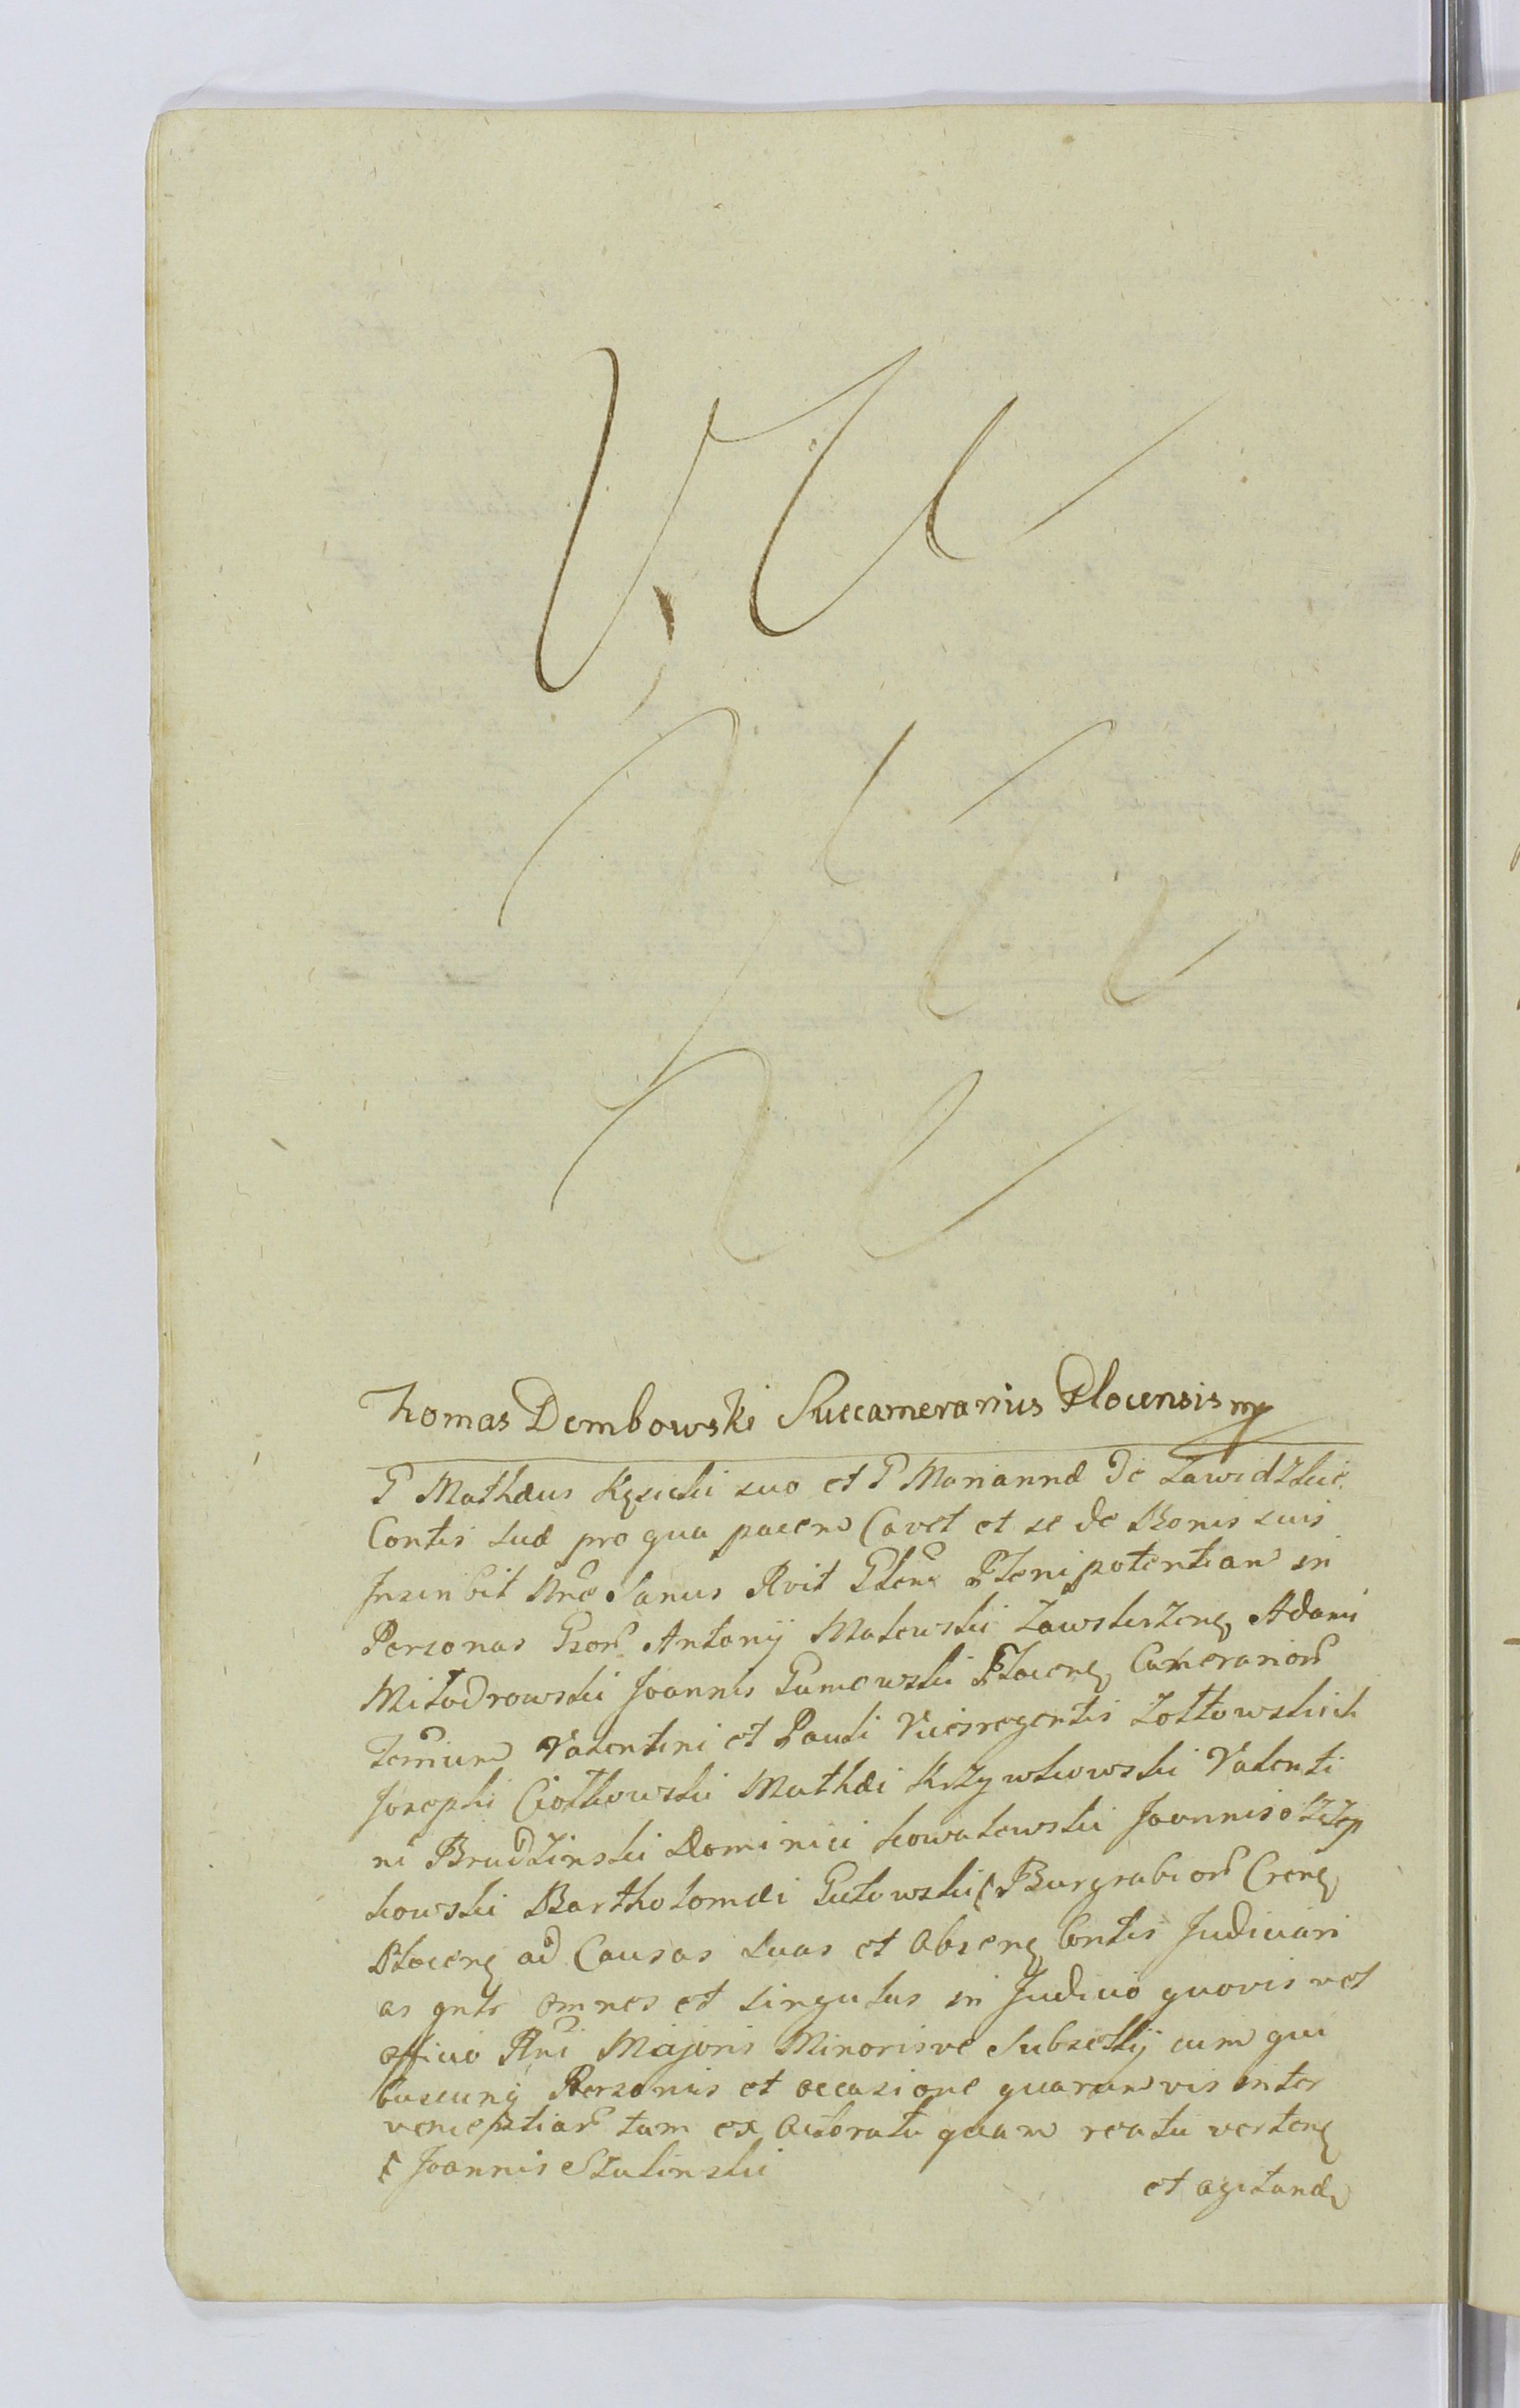 Thomas Dembowski Succamerarius Plocensis mp
G Mathæus Kęsicki suo et G Mariannæ de Zawidzkie
Contis suæ pro qua pacem Cavet et se de Bonis suis
Inscribit Nne Sanus Rvit Plenr Plenipotentiam in
Personas Gsor Antonij Malewski Zawskrzeng Adami
Miłodrowski Joannis Gumowski Płoceng Camerarior
Terrium Valentini et Pauli Vicesregentis Zołtowskich
Josephi Ciołkowski Mathæi Krzywkowski Valenti
ni Brudzinski Dominici Kowalewski Joannis Olszep
kowski Bartholomæi Gutowski Burgrabior Creng
Płoceng ad Causas suas et Abseng Contis Judiciari
as gnlr omnes et singulas in Judicio quovis vel
officio Rni Majoris Minorisve Subsellij cum qui
buscunq Personis et occasione quarumvis inter
venientiar tam ex Actoratu quam reatu verteng
Joannis Szulinski
et agitand